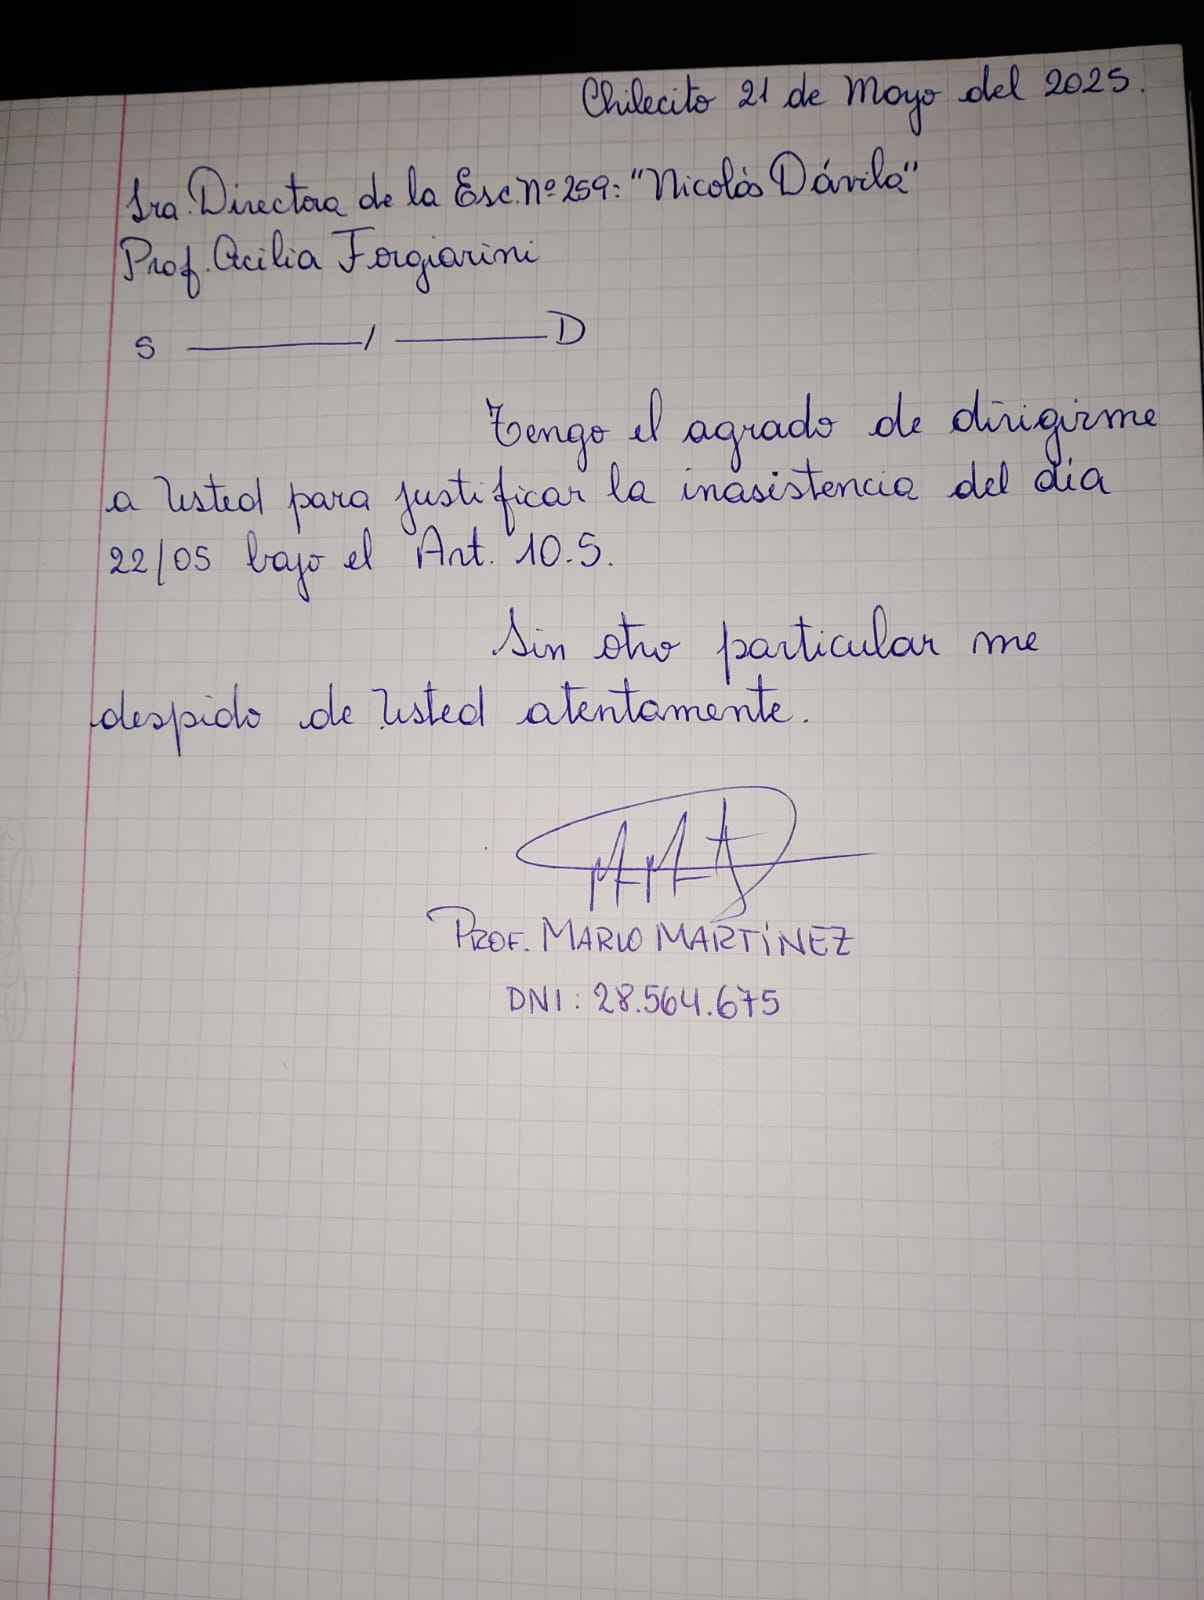 Chilecito 21 de Mayo del 2025.
Sra. Directora de la Esc. Nº 259: "Nicolás Dávila"
Prof. Cecilia Forgiarini
S ———/———D
Tengo el agrado de dirigirme
a Usted para justificar la inasistencia del día
22/05 bajo el Art. 10.5.
Sin otro particular me
despido de Usted atentamente.
PROF. MARIO MARTÍNEZ
DNI: 28.564.675